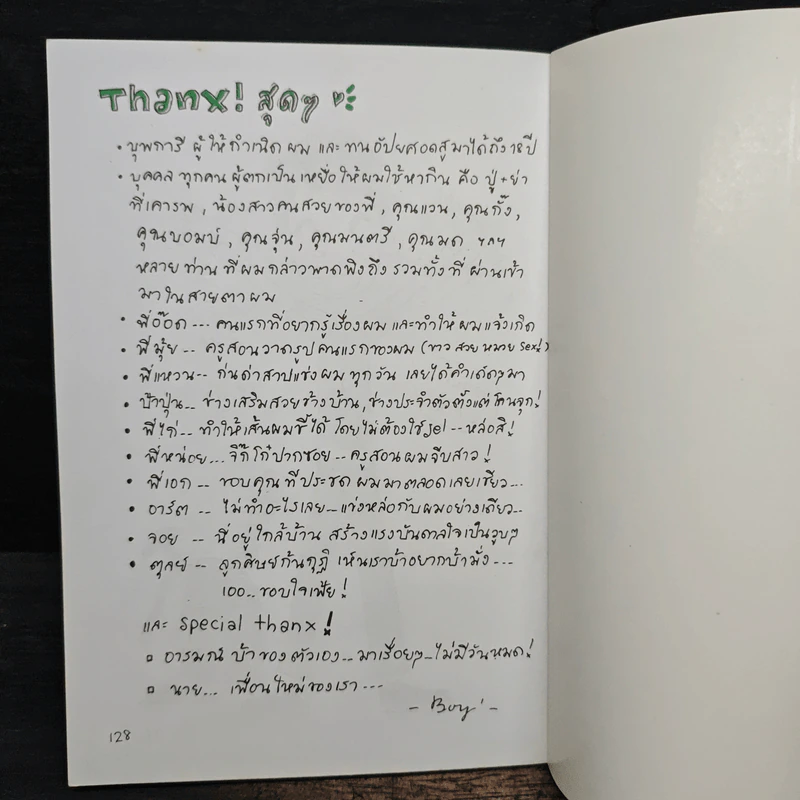 Thanx! สุดๆ
• บุพการี ผู้ให้กำเนิดผม และ ทนอัปยศอดสูมาได้ถึง 18 ปี
• บุคคลทุกคน ผู้ตกเป็น เหยื่อให้ผมใช้หากิน คือ ปู่+ย่า
ที่เคารพ, น้องสาวคนสวยของพี่, คุณแวน, คุณกั้ง,
คุณบอมบ์, คุณจุ่น, คุณมนตรี, คุณมด ฯลฯ
หลายท่านที่ผมกล่าวพาดพิงถึง รวมทั้งที่ ผ่านเข้า
มาในสายตาผม
• พี่อ๊อด --- คนแรกที่อยากรู้เรื่องผม และทำให้ผมแจ้งเกิด
• พี่มุ้ย -- ครูสอนวาดรูปคนแรกของผม (ขาว สวย หมวย sex!)
• พี่แหวน -- ก่นด่าสาปแช่งผมทุกวัน เลยได้คำเด็ดๆมา
• ป้าปุ่น -- ช่างเสริมสวยข้างบ้าน, ช่างประจำตัวตั้งแต่โกนจุก!
• พี่ไก่ -- ทำให้เส้นผมชี้ได้ โดยไม่ต้องใช้ Jel -- หล่อสิ!
• พี่หน่อย... จิ๊กโก๋ปากซอย -- ครูสอนผมจีบสาว!
• พี่เอก -- ขอบคุณที่ประชดผมมาตลอดเลยเชียว...
• อาร์ต -- ไม่ทำอะไรเลย -- แข่งหล่อกับผมอย่างเดียว...
• จอย -- ที่อยู่ใกล้บ้าน สร้างแรงบันดาลใจเป็นวูบๆ
• ตุลย์ -- ลูกศิษย์ก้นกุฏิ เห็นเราบ้าอยากบ้ามั่ง ---
100.. ขอบใจเฟ้ย!
และ special thanx!
▫ อารมณ์ บ้าของตัวเอง... มาเรื่อยๆ - ไม่มีวันหมด!
▫ นาย... เพื่อนใหม่ของเรา ---
- Boy' -
128